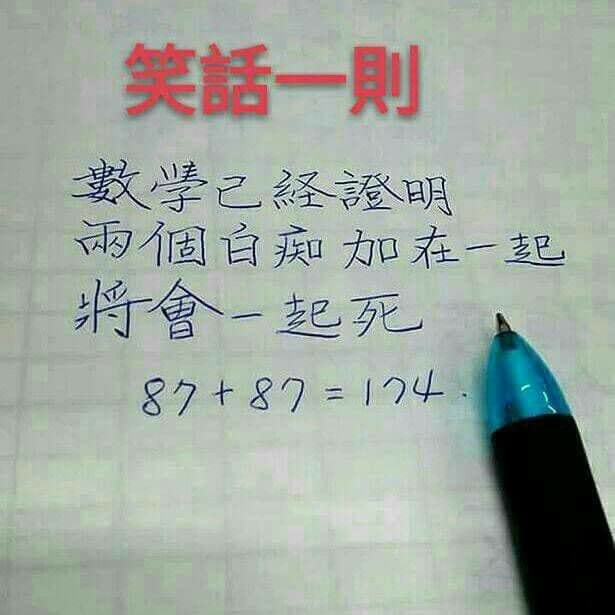 笑話一則
數學已経證明
兩個白痴加在一起
將會一起死
87+87=174.